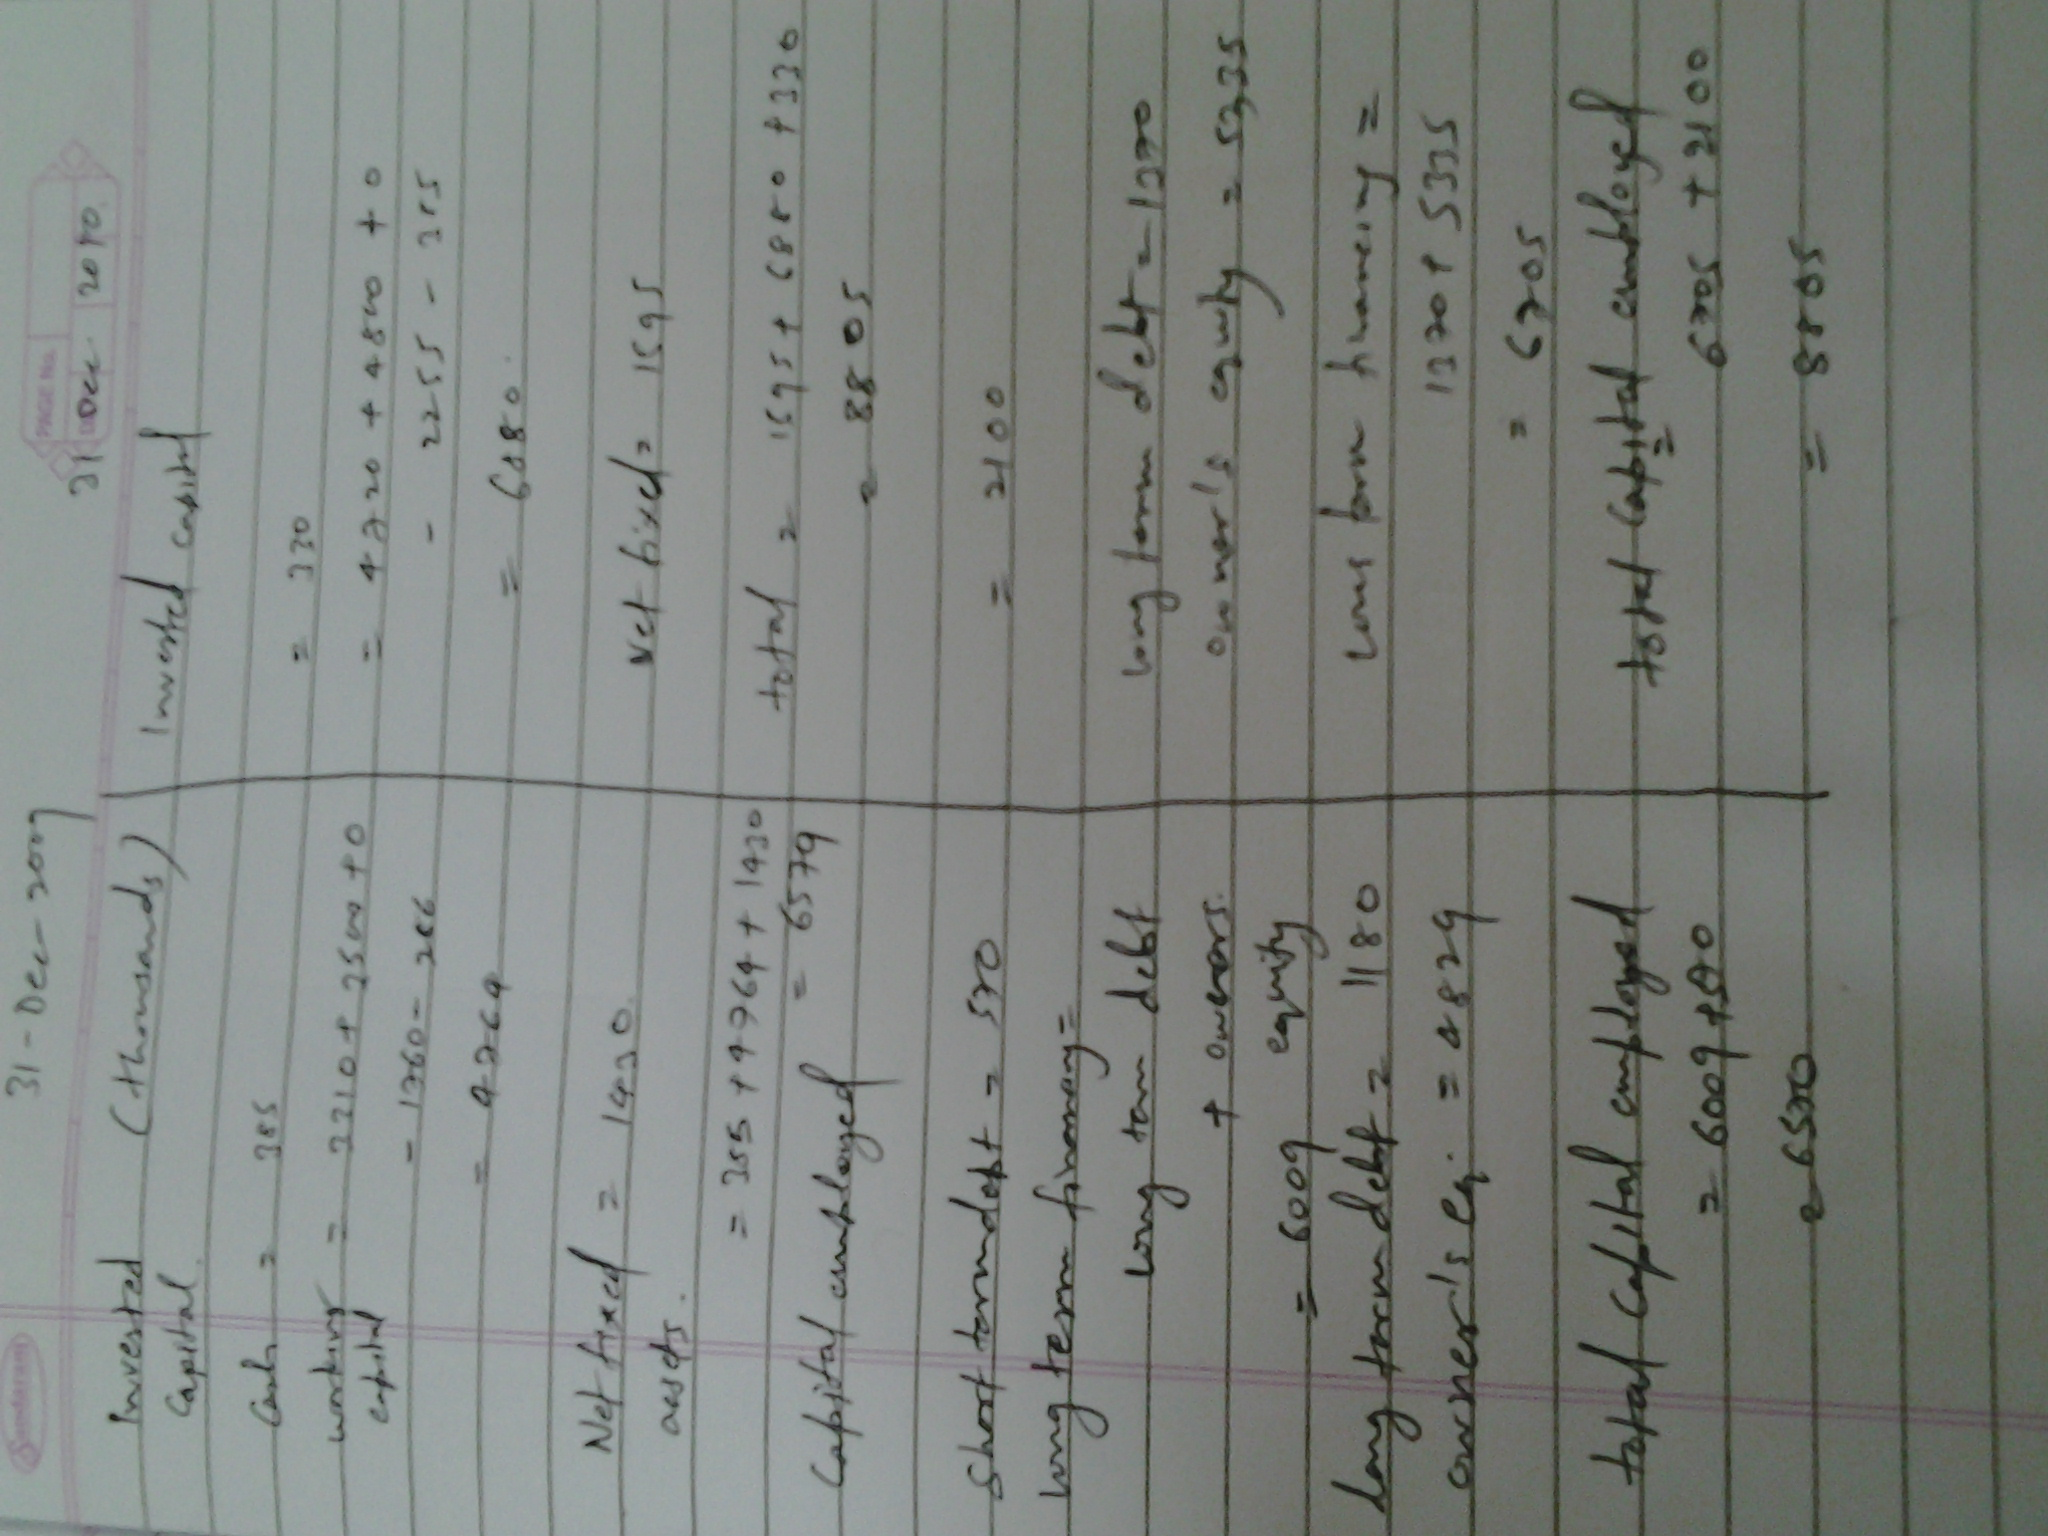 Sundaram
31-Dec-2009
PAGE NO.
31 Dec 2010
Invested (thousands)
Capital.
Cash = 385
working = 3210 + 3500 + 0
capital
- 1760 - 266
= 4764
Net fixed = 1430
assets.
= 355 + 4764 + 1430
= 6579
Capital employed
Short term debt = 570
long term financing =
long term debt
+ owners.
equity
= 6009
Long term debt = 1180
owner's eq. = 4829
total capital employed
= 6009 + 570
= 6570
Invested capital
= 330
= 4220 + 4800 + 0
- 2255 - 385
= 6880.
Net fixed = 1595
total = 1595 + 6880 + 330
= 8805
= 2100
long term debt = 1370
owner's equity = 5335
Long term financing =
1370 + 5335
= 6705
total capital employed
=
6705 + 2100
= 8805